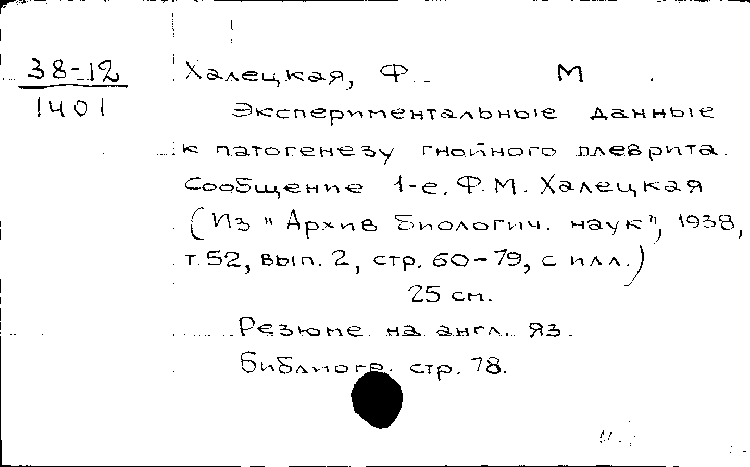 38-12
1401
Халецкая, Ф. М.
Экспериментальные данные
к патогенезу гнойного плеврита.
Сообщение 1-е. Ф.М. Халецкая
(Из "Архив биологич. наук", 1938,
т. 52, вып. 2, стр. 60-79, с илл.)
25 см.
Резюме на англ. яз.
Библиогр. стр. 78.